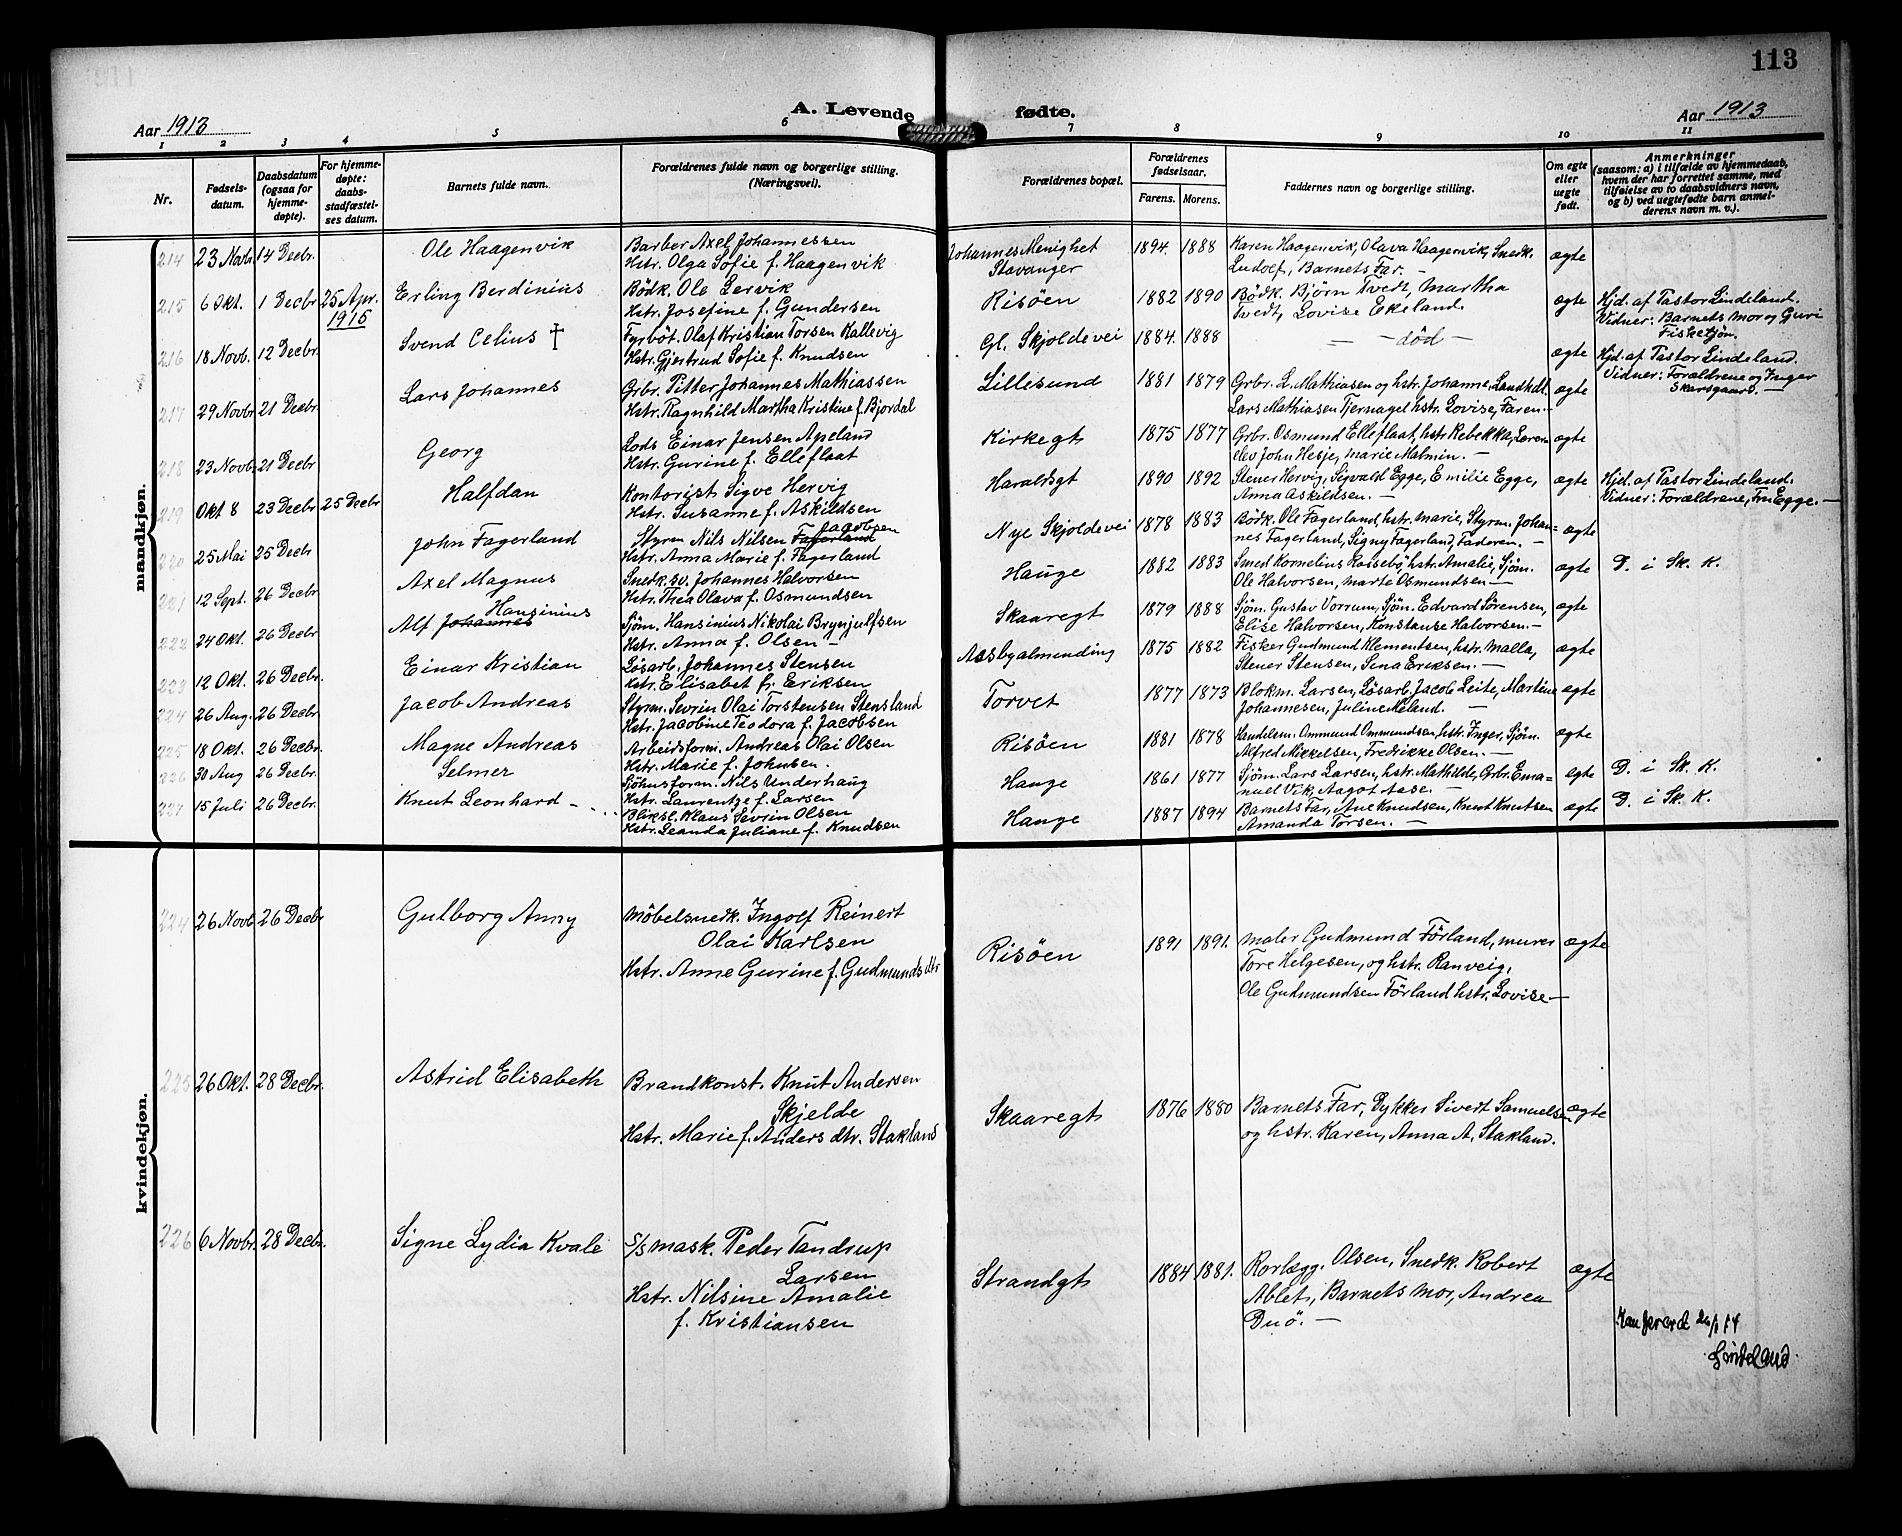 113
A. Levende fødte.
Aar 1913
Aar 1913
1 2 3 4 5 6 7 8 9 10 11
Nr.
Fødsels-
datum.
Daabsdatum
(ogsaa for
hjemme-
døpte).
For hjemme-
døpte:
daabs-
stadfæstel-
ses datum.
Barnets fulde navn.
Forældrenes fulde navn og borgerlige stilling.
(Næringsvei).
Forældrenes bopæl.
Forældrenes
fødselsaar.
Farens. Morens.
Faddernes navn og borgerlige stilling.
Om egte
eller
uegte
født.
Anmerkninger
(saasom: a) i tilfælde av hjemmedaab,
hvem der har forrettet samme, med
tilføielse av to daabsvidners navn,
og b) ved uegtefødte barn anmel-
derens navn m. v.).
mandkjøn.
214 23 Novbr. 14 Decbr. Ole Haagenvik Barber Axel Johannessen Johannes Menighet 1894. 1888 Karen Haagenvik, Olava Haagenvik, Snedk. ægte
Hstr. Olga Sofie f. Haagenvik Stavanger Ludolf, Barnets Far. —
215 6 Okt. 1 Decbr 25 Apr. 1915 Erling Berdinius Bödk. Ole Lervik Risöen 1882 1890 Bödk. Bjørn Tvedt, Martha ægte Hjd. af Pastor Lindeland.
Hstr. Josefine f. Gundersen Tvedt, Lovise Ekeland. Vidner: Barnets Mor og Guri
Fisketjøn.
216 18 Novb. 12 Decbr. Svend Celius † Fyrböt. Olaf Kristian Torsen Hallevig Gl. Skjoldevei 1884. 1888 — — død — ægte Hjd. af Pastor Lindeland.
Hstr. Gjertrud Sofie f. Knudsen Vidner: Forældrene og Inger
Skarsgaard. —
217 29 Novbr 21 Decbr. Lars Johannes Grbr. Pitter Johannes Mathiassen Lillesund 1881 1879 Grbr. L. Mathiasen og hstr. Johanne, Landhdl. ægte
Hstr. Ragnhild Martha Kristine f. Bjordal Lars Mathiasen Tjernagel hstr. Lovise, Faren. —
218 23 Novb. 21 Decbr Georg Lods Einar Jensen Apeland Kirkegt 1875 1877 Grbr. Osmund Elleflaat, hstr Rebekka, Lærer- ægte
Hstr. Gurine f. Elleflaat elev John Hesje, Marie Malmin. —
219 Okt 8 23 Decbr 25 Decbr Halfdan Kontorist Sigve Hervig Haraldsgt 1890 1892 Stener Hervig, Sigvald Egge, Emilie Egge, ægte Hjd. af Pastor Lindeland.
Hstr. Susanne f. Askildsen Anna Askildsen. — Vidner: Forældrene, Fru Egge. —
220 25 Mai 25 Decbr John Fagerland Styrm Nils Nilsen Fagerland Jacobsen Nye Skjoldevei 1878 1883 Bödk. Ole Fagerland, hstr. Marie, Styrm. Johan= ægte
Hstr. Anna Marie f. Fagerland nes Fagerland, Signy Fagerland, Faderen. —
221 12 Sept. 26 Decbr Axel Magnus Snedk. sv. Johannes Halvorsen Hauge 1882 1883 Smed Kornelius Rossebö, hstr. Amalie, Sjöm. ægte D. i Sk. K.
Hstr. Thea Olava f. Osmundsen Ole Halvorsen, Marte Osmundsen —
222 24 Okt. 26 Decbr. Alf Johannes Hansinius Sjöm. Hansinius Nikolai Brynjulfsen Skaaregt 1879 1888 Sjöm. Gustav Vorrum, Sjöm. Edvard Sørensen, ægte
Hstr. Anna f. Olsen — Elise Halvorsen, Konstanse Halvorsen. —
223 12 Okt. 26 Decbr. Einar Kristian Løsarb. Johannes Stensen Aasbyalmending 1875 1882 Fisker Gudmund Klementsen, hstr. Malla, ægte
Hstr. Elisabet f. Eriksen Stener Stensen, Sina Eriksen. —
224 26 Aug. 26 Decbr Jacob Andreas Styrm. Sevrin Olai Torstensen Stensland Torvet 1877 1873 Blokm. Larsen, Løsarb. Jacob Leite, Martine ægte
Hstr. Jacobine Teodora f. Jacobsen Johannesen, Juline Meland. —
225 18 Okt. 26 Decbr. Magne Andreas Arbeidsform. Andreas Olai Olsen Risöen 1881 1878 Handelsm. Ommund Ommundsen, hstr. Inger, Sjöm. ægte
Hstr. Marie f. Johnsen. Alfred Mikkelsen, Fredrikke Olsen. —
226 30 Aug 26 Decbr. Selmer Sjöhusform. Nils Underhaug Hauge 1861 1877 Sjöm. Lars Larsen, hstr. Mathilde, Grbr. Ema= ægte D. i Sk. K.
Hstr. Laurentze f. Larsen nuel Vik, Aagot Aase. —
227 15 Juli 26 Decbr. Knut Leonhard — Bliksl. Klaus Sevrin Olsen Hauge 1887 1894 Barnets Far, Ane Knudsen, Knut Knutsen ægte D. i Sk. K.
Hstr. Leanda Juliane f. Knudsen Amanda Torsen. —
kvindekjøn.
224 26 Novb 26 Decbr Gulborg Anny Möbelsnedk. Ingolf Reinert Risöen 1891 1891. Maler Gudmund Förland, murer ægte
Olai Karlsen Tore Helgesen, og hstr. Ranveig,
Hstr. Anne Gurine f. Gudmunds dtr Ole Gudmundsen Förland hstr. Lovise —
225 26 Okt. 28 Decbr. Astrid Elisabeth Brandkonst. Knut Andersen Skaaregt 1876 1880 Barnets Far, Dykker Sivert Samuelsen ægte
Skjelde og hstr. Karen, Anna A. Stakland.
Hstr. Marie f. Anders dtr. Stakland
226 6 Novbr. 28 Decbr. Signe Lydia Kvale S/S mask. Peder Tandrup Strandgt 1884 1881. Rørlægg. Olsen, Snedk. Robert ægte
Larsen Ablet, Barnets Mor, Andrea
Hstr. Nilsine Amalie Duö. —
f. Kristiansen
Lindeland.